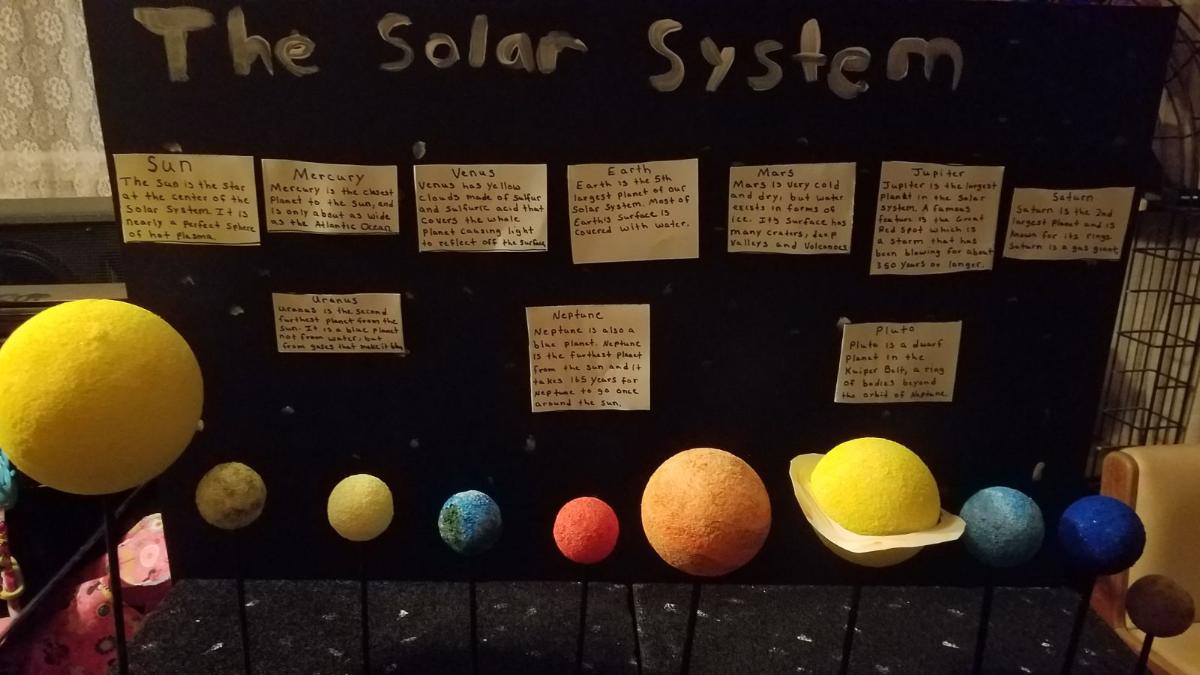 The Solar System
Sun
The Sun is the star
at the center of the
Solar System. It is
nearly a Perfect Sphere
of hot plasma.
Mercury
Mercury is the closest
Planet to the Sun, and
is only about as wide
as the Atlantic Ocean
Venus
Venus has Yellow
Clouds made of Sulfur
and Sulfuric acid that
Covers the whole
Planet causing light
to reflect off the Surface
Earth
Earth is the 5th
largest Planet of our
Solar System. Most of
Earth's Surface is
Covered with water.
Mars
Mars is very cold
and dry, but water
exists in forms of
ice. Its Surface has
many craters, deep
Valleys and Volcanoes
Jupiter
Jupiter is the largest
Planet in the Solar
System. A famous
feature is the Great
Red Spot which is
a storm that has
been blowing for about
350 years or longer.
Saturn
Saturn is the 2nd
largest Planet and is
Known for its rings
Saturn is a gas giant
Uranus
Uranus is the second
furthest Planet from the
Sun. It is a blue Planet
not from water, but
from gases that make it
Neptune
Neptune is also a
blue planet. Neptune
is the furthest Planet
from the Sun and it
takes 165 Years for
Neptune to go once
around the Sun.
Pluto
Pluto is a dwarf
Planet in the
Kuiper Belt, a ring
of bodies beyond
the orbit of Neptune.